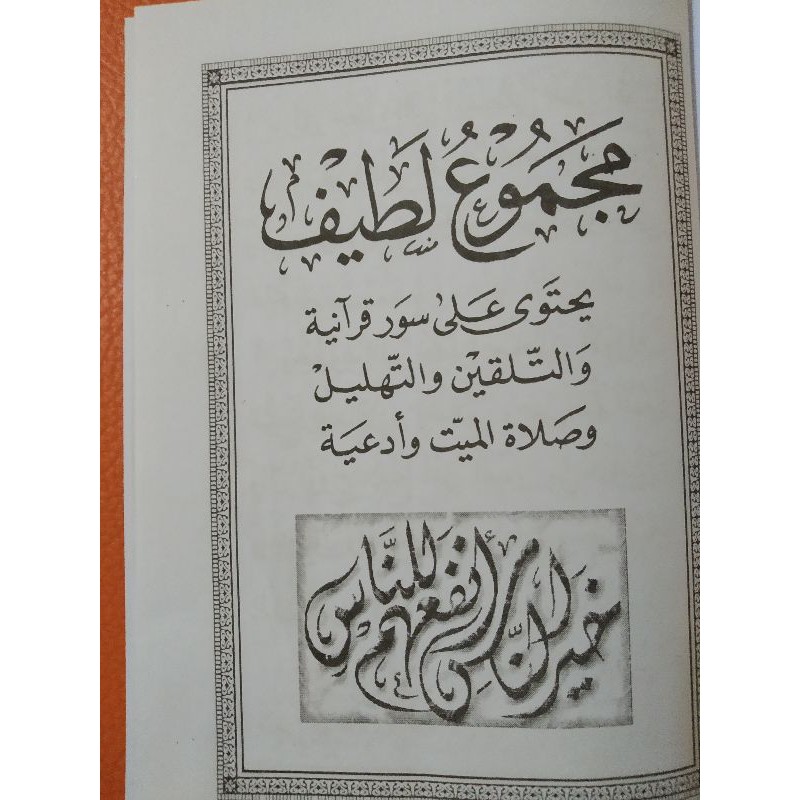 مَجَمُوعُ لَطِيف
يحتَوى عَلىٰ سوَر قرآنية
وَالتّلقيْن والتّهليلْ
وصَلاة الميّت وأدعيَة
خير النّاس أنفعهم للنَّاس